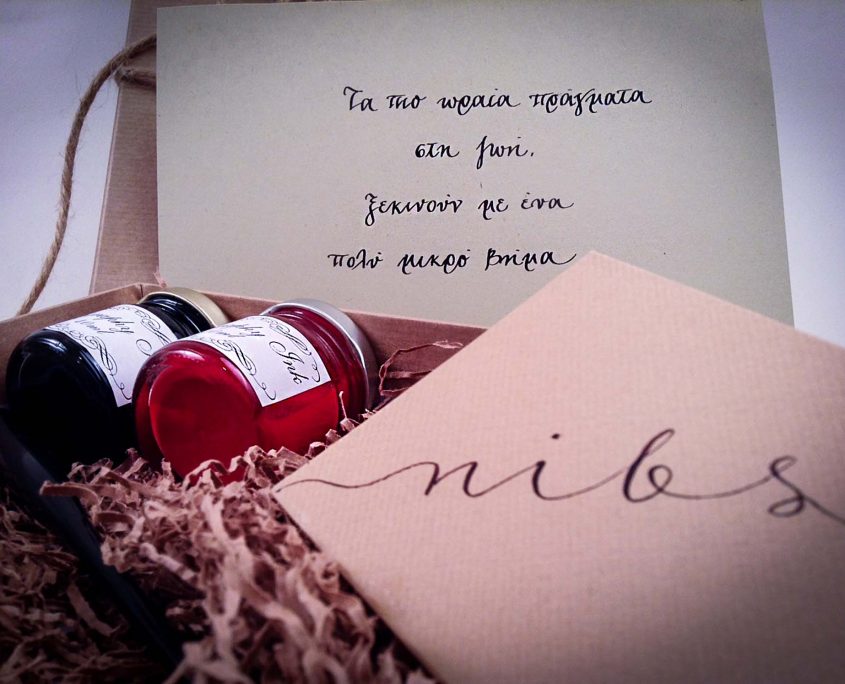 Τα πιο ωραία πράγματα
στη ζωή,
ξεκινούν με ένα
πολύ μικρό βήμα
Ink
nibs